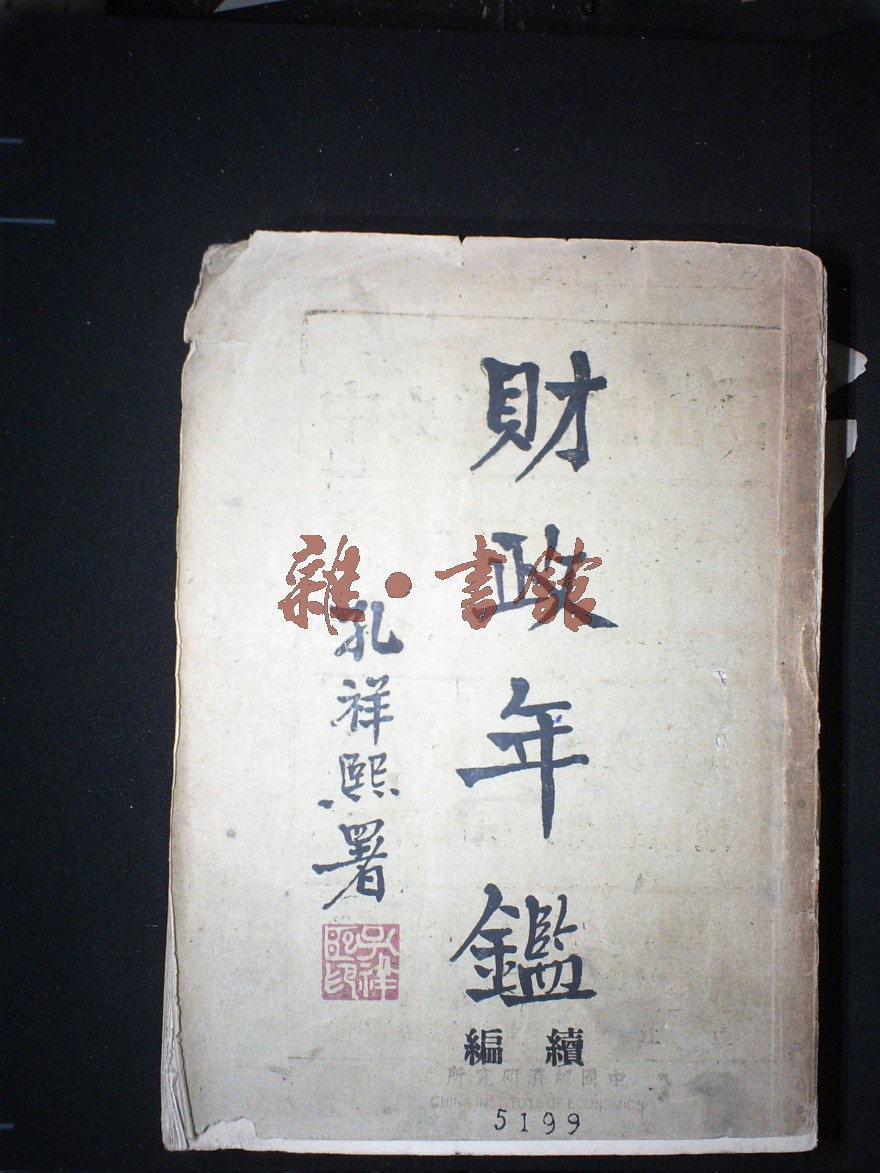 財政年鑑
續編
孔祥熙署
孔祥熙印
雜·書館
中國經濟研究所
CHINA INSTITUTE OF ECONOMICS
5199